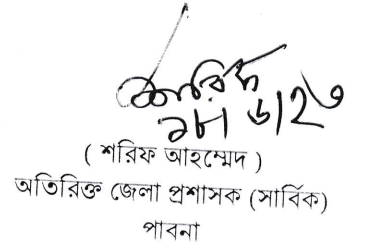 শরিফ
১৮/৬/২৩
( শরিফ আহম্মেদ )
অতিরিক্ত জেলা প্রশাসক (সার্বিক)
পাবনা